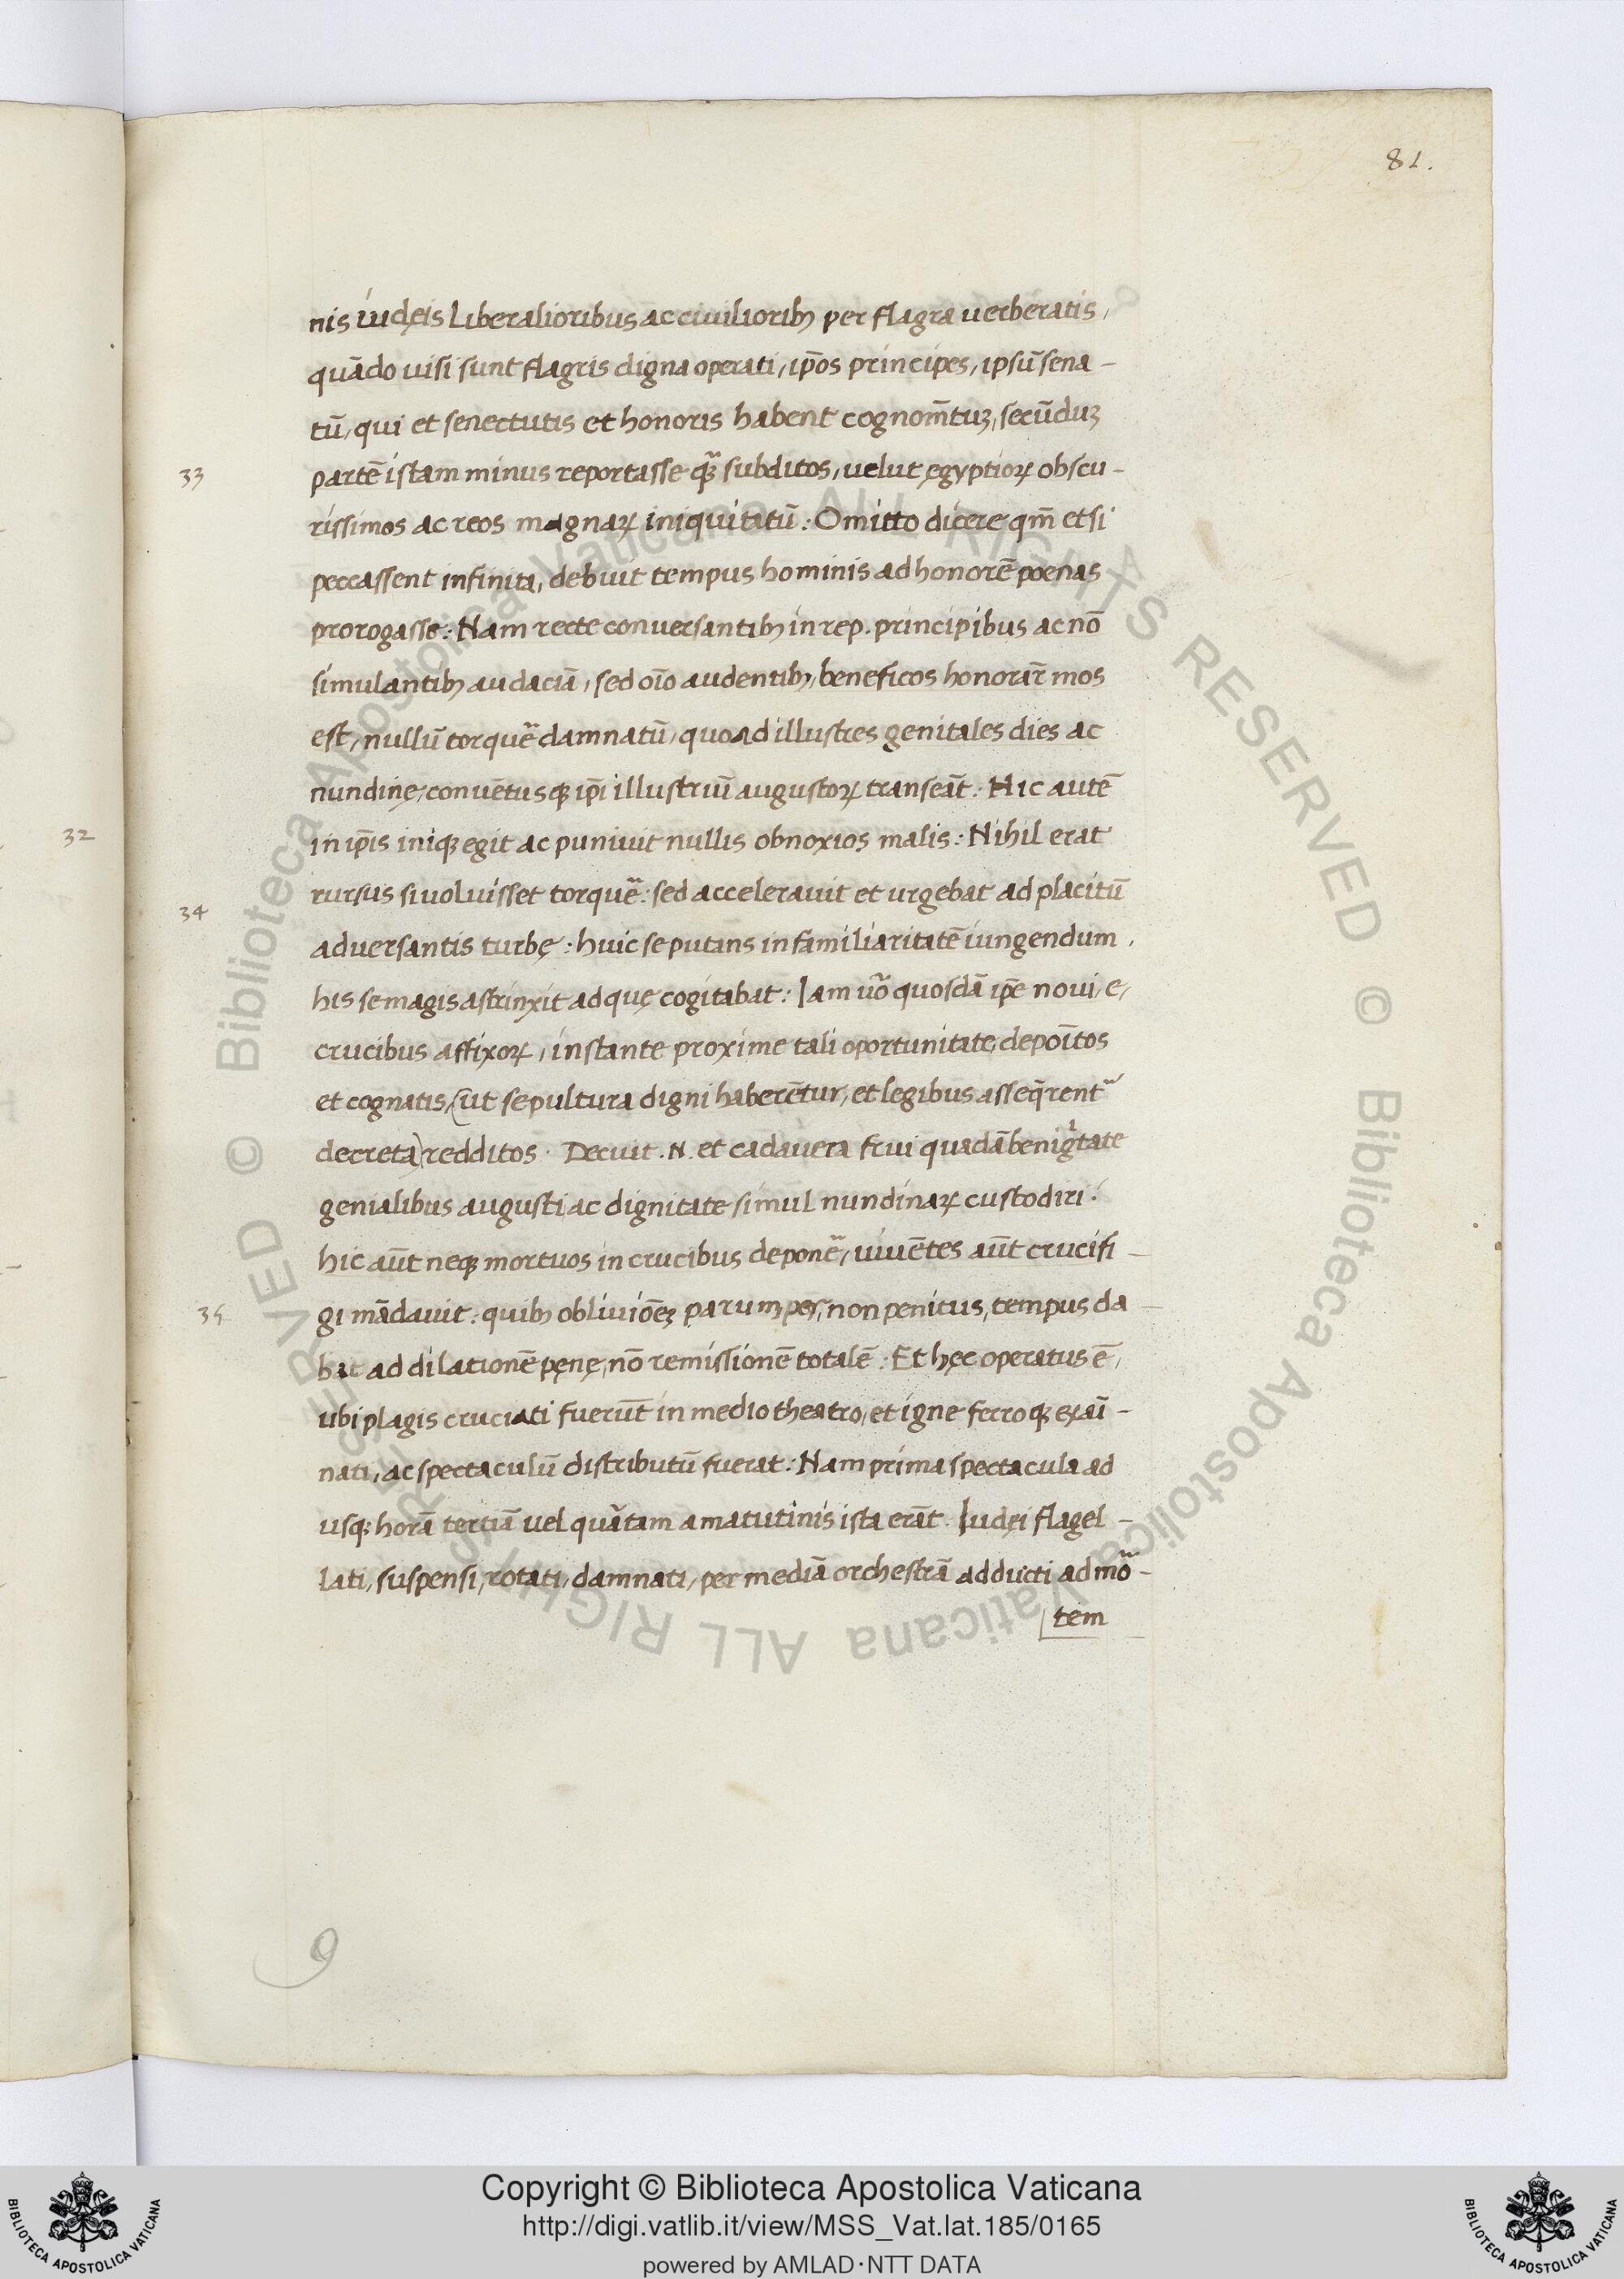 81.
nis iudęis liberalioribus ac ciuiliorib; per flagra uerberatis,
quādo uisi sunt flagris digna operati, ip̄os principes, ipsū sena-
tū, qui et senectutis et honoris habent cognom̄tuꝫ, secūduꝫ
33
partē istam minus reportasse qꝫ̃ subditos, uelut ęgyptioꝝ obscu-
rissimos ac reos magnaꝝ iniquitatū: Omitto dicere qm̄ etsi
peccassent infinita, debuit tempus hominis ad honorē poenas
prorogasse: Nam recte conuersantib; in rep. principibus ac nō
simulantib; audaciā, sed oīo audentib;, beneficos honorar̄ mos
est, nullū torquẽ damnatū, quoad illustres genitales dies ac
nundinę, conuētusqꝫ ip̄i illustriū augustoꝝ transeāt: Hic autē
32
in ip̄is iniqꝫ egit ac puniuit nullis obnoxios malis: Nihil erat
rursus si uoluisset torquẽ: sed accelerauit et urgebat ad placitū
34
aduersantis turbę: huic se putans in familiaritatē iungendum,
his se magis astrinxit ad quę cogitabat: Iam ūo quosdā ip̄e noui, e,
crucibus affixoꝝ, instante proxime tali oportunitate depoītos
et cognatis, (ut sepultura digni haberētur, et legibus asseq̄rent̃
decreta) redditos. Decuit .N. et cadauera frui quadā benigͥtate
genialibus augusti ac dignitate simul nundinaꝝ custodiri:
hic aūt neqꝫ mortuos in crucibus deponẽ, uiuētes aūt crucifi-
35
gi mādauit: quib; obliuiōeꝫ parumper, non penitus, tempus da-
bat ad dilationē pęnę, nō remissionē totalē: Et hęc operatus ē,
ubi plagis cruciati fuerūt in medio theatro, et igne ferroqꝫ exaī-
nati, ac spectaculū distributū fuerat: Nam prima spectacula ad
usqꝫ horā tertiā uel quartam a matutinis ista erāt. Iudęi flagel-
lati, suspensi, rotati, damnati, per mediā orchestrā adducti ad mō-
tem
9
© Biblioteca Apostolica Vaticana ALL RIGHTS RESERVED © Biblioteca Apostolica Vaticana ALL RIGHTS RESERVED
Copyright © Biblioteca Apostolica Vaticana
http://digi.vatlib.it/view/MSS_Vat.lat.185/0165
powered by AMLAD·NTT DATA
BIBLIOTECA APOSTOLICA VATICANA
BIBLIOTECA APOSTOLICA VATICANA